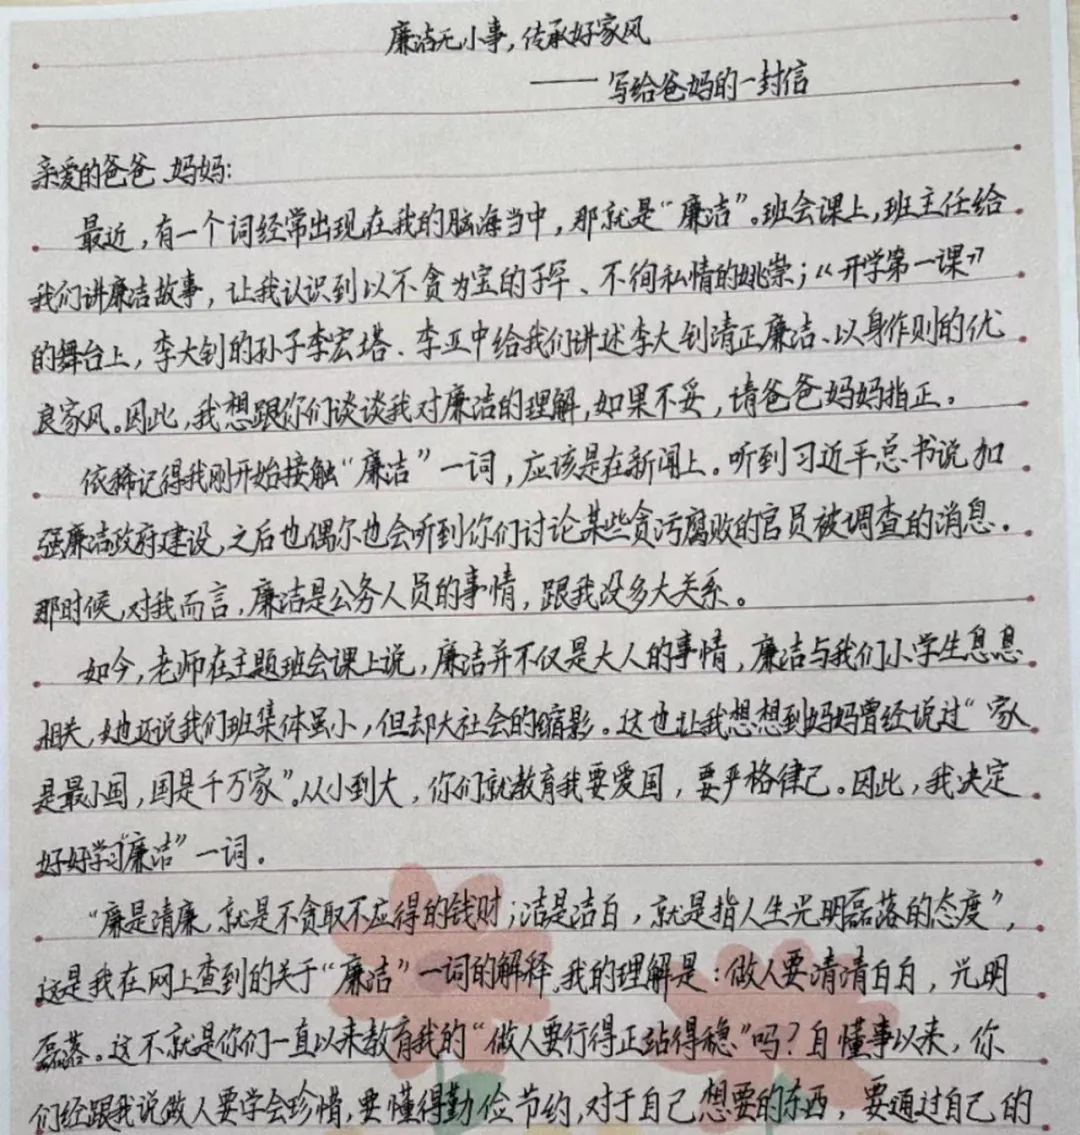 廉洁无小事，传承好家风
——写给爸妈的一封信
亲爱的爸爸、妈妈：
最近，有一个词经常出现在我的脑海当中，那就是“廉洁”。班会课上，班主任给
我们讲廉洁故事，让我认识到以不贪为宝的子罕、不徇私情的姚崇；《开学第一课》
的舞台上，李大钊的孙子李宏塔、李亚中给我们讲述李大钊清正廉洁、以身作则的优
良家风。因此，我想跟你们谈谈我对廉洁的理解，如果不妥，请爸爸妈妈指正。
依稀记得我刚开始接触“廉洁”一词，应该是在新闻上。听到习近平总书说加
强廉洁政府建设，之后也偶尔也会听到你们讨论某些贪污腐败的官员被调查的消息。
那时候，对我而言，廉洁是公务人员的事情，跟我没多大关系。
如今，老师在主题班会课上说，廉洁并不仅是大人的事情，廉洁与我们小学生息息
相关，她还说我们班集体虽小，但却大社会的缩影。这也让我想想到妈妈曾经说过“家
是最小国，国是千万家”。从小到大，你们就教育我要爱国，要严格律己。因此，我决定
好好学习“廉洁”一词。
“廉是清廉，就是不贪取不应得的钱财；洁是洁白，就是指人生光明磊落的态度”，
这是我在网上查到的关于“廉洁”一词的解释。我的理解是：做人要清清白白，光明
磊落。这不就是你们一直以来教育我的“做人要行得正站得稳”吗？自懂事以来，你
们经跟我说做人要学会珍惜，要懂得勤俭节约，对于自己想要的东西，要通过自己的